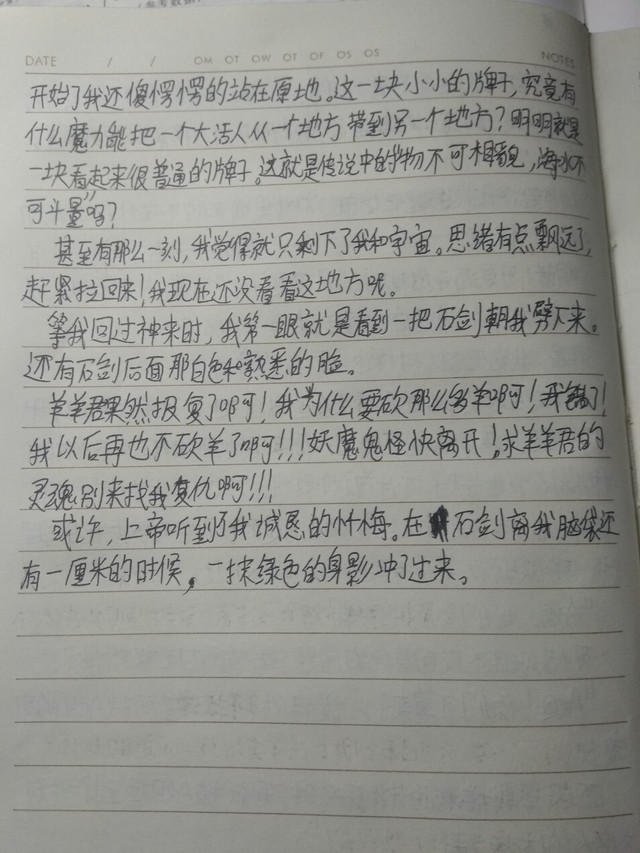 DATE / / OM OT OW OT OF OS OS NOTES
开始了我还傻愣愣的站在原地。这一块小小的牌子,究竟有
什么魔力能把一个大活人从一个地方带到另一个地方?明明就是
一块看起来很普通的牌子。这就是传说中的“物不可相貌,海水不
可斗量”吗?
甚至有那么一刻,我觉得就只剩下了我和宇宙。思绪有点飘远了,
赶紧拉回来!我现在还没看看这地方呢。
等我回过神来时,我第一眼就是看到一把石剑朝我劈下来。
还有石剑后面那白色和熟悉的脸。
羊羊君果然报复了啊!我为什么要砍那么多羊啊!我错了!
我以后再也不砍羊了啊!!!妖魔鬼怪快离开!求羊羊君的
灵魂别来找我复仇啊!!!
或许,上帝听到了我诚恳的忏悔。在石剑离我脑袋还
有一厘米的时候,一抹绿色的身影冲了过来。